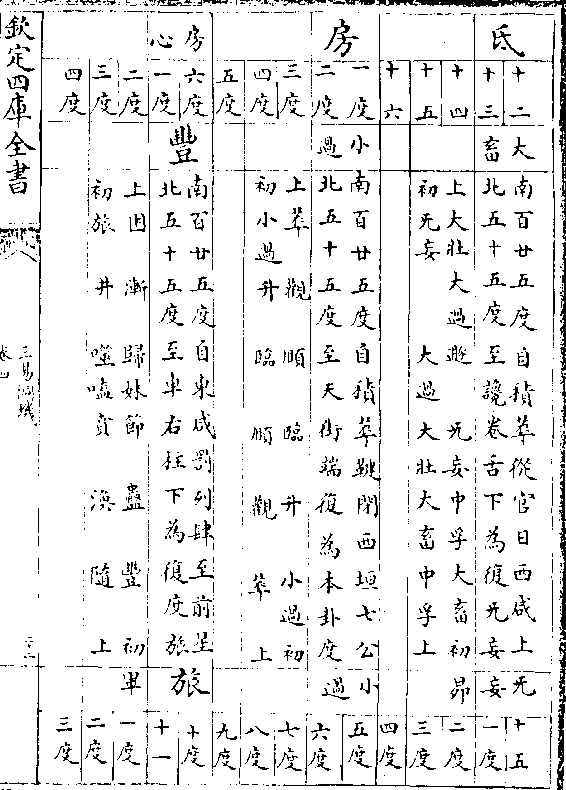 氐
房
房心
十二
十三
十四
十五
十六
一度
二度
三度
四度
五度
六度
一度
二度
三度
四度
大畜
南百廿五度自積莘從官日西咸上无
北五十五度至讒卷舌下為復无妄妄
上大壯大過遯无妄中孚大畜初昴
初无妄大過大壯大畜中孚上
小過
南百廿五度自積莘鍵閉西垣七公小
北五十五度至天街端復為本卦度過
上萃觀順臨升小過初
初小過升臨順觀萃上
豐
南百廿五度自東咸罰列肆至前星
北五十五度至車右柱下為復度旅
旅
上困漸歸妹節蠱豐初畢
初旅井噬嗑賁渙隨上
十五
一度
二度
三度
四度
五度
六度
七度
八度
九度
十度
十一
一度
二度
三度
欽定四庫全書
三易洞璣